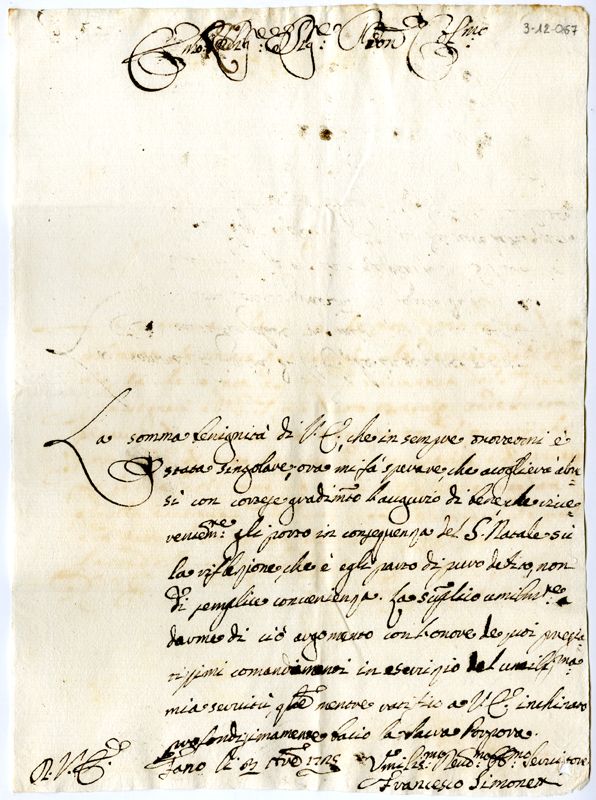 3-12-067
Emo. e Sig.re Sig.re Pron Col.mo
La somma benignità di V. E. che in sempre
stata singolare, ora mi fà sperare, che accoglierà altre=
sì con cortese gradim.to l'augurio di bene, che rive=
rentem.te gli porto in conseguenza del S. Natale su
la riflessione, che è egli parto di puro desio, non
di semplice convenienza. La supplico umilm.te a
darme di ciò argomento con l'onore de suoi pregia
tissimi comandamenti in esercizio del umiliss.ma
mia servitù, q.le mentre ratifico a V. E. inchinato
profondissimamente bacio la Sacra Porpora.
D. V. E.
Fano li 1725
Umiliss.mo Deuo.mo Ob.mo Servitore
Francesco Simonetti